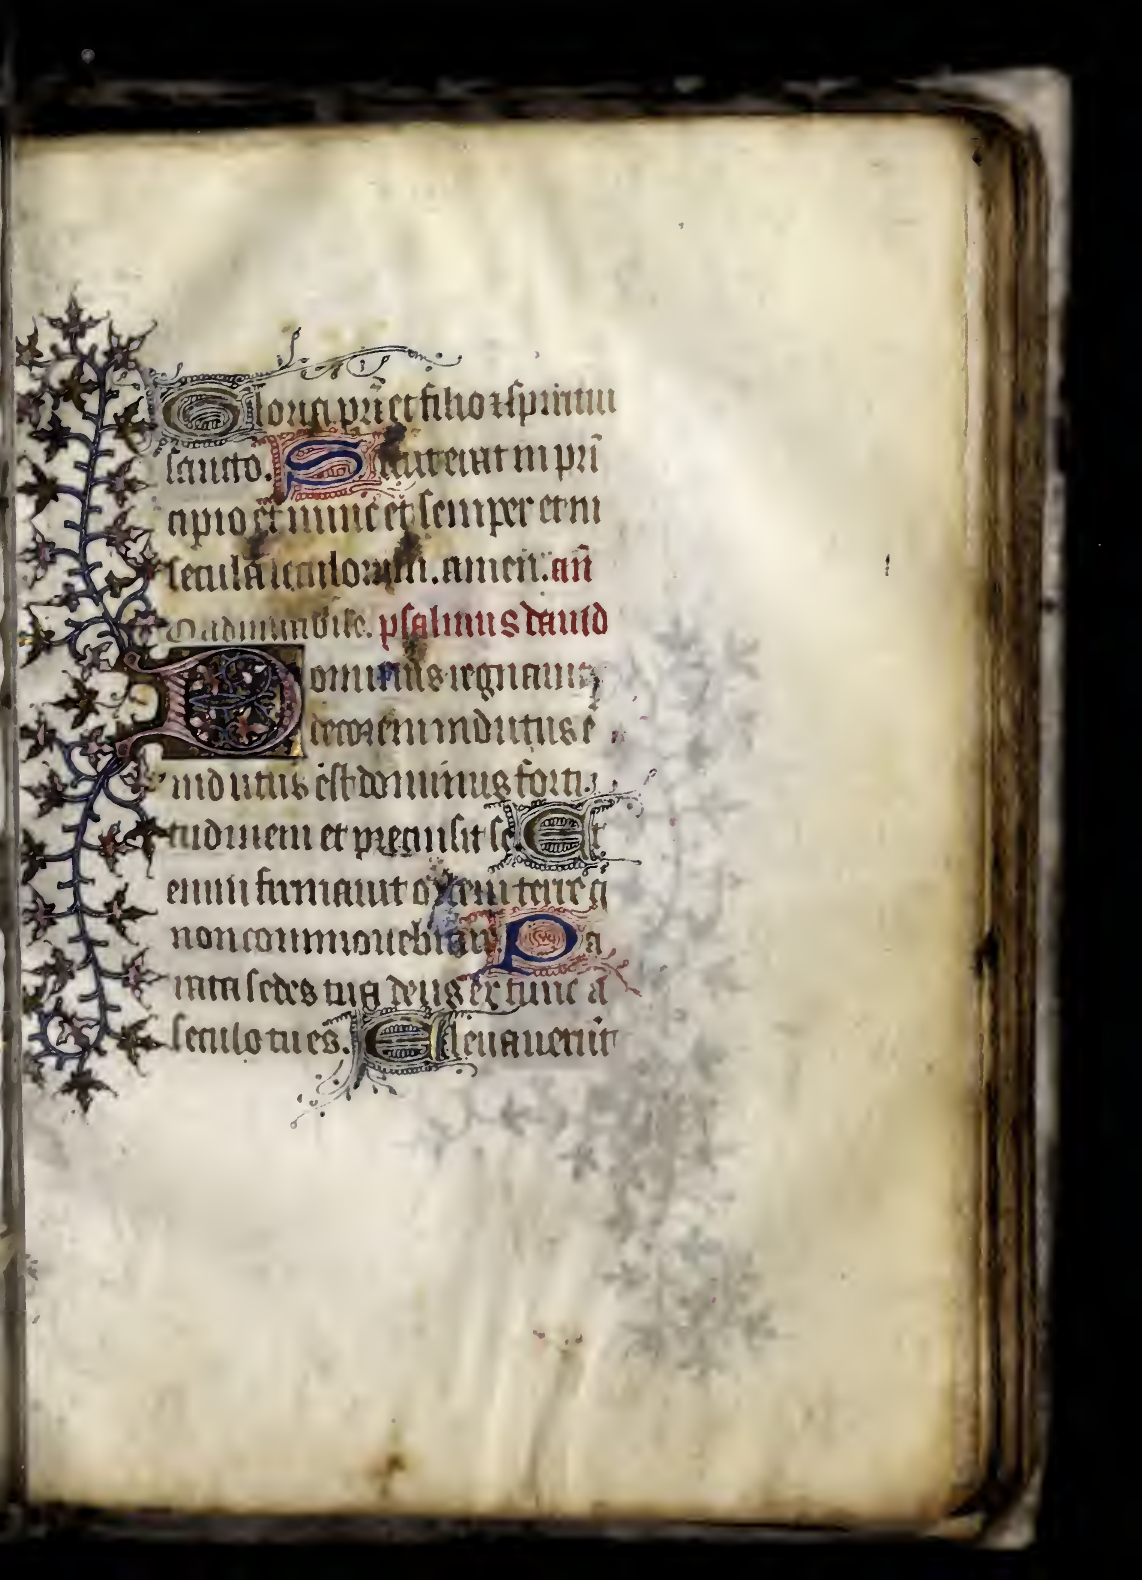 Gloria pri et filio ⁊ spiritui
sancto. Sicut erat in prī
cipio et nunc et semper et in
secula seculorum. amen. añ
psalmus dauid
Dominus regnauit
decorem indutus ē
indutus est dominus forti
tudinem et precinsit se. Et
enim firmauit orbem terre q̄
non commouebitur. Pa
rata sedes tua deus ex tunc a
seculo tu es. Eleuauerūt